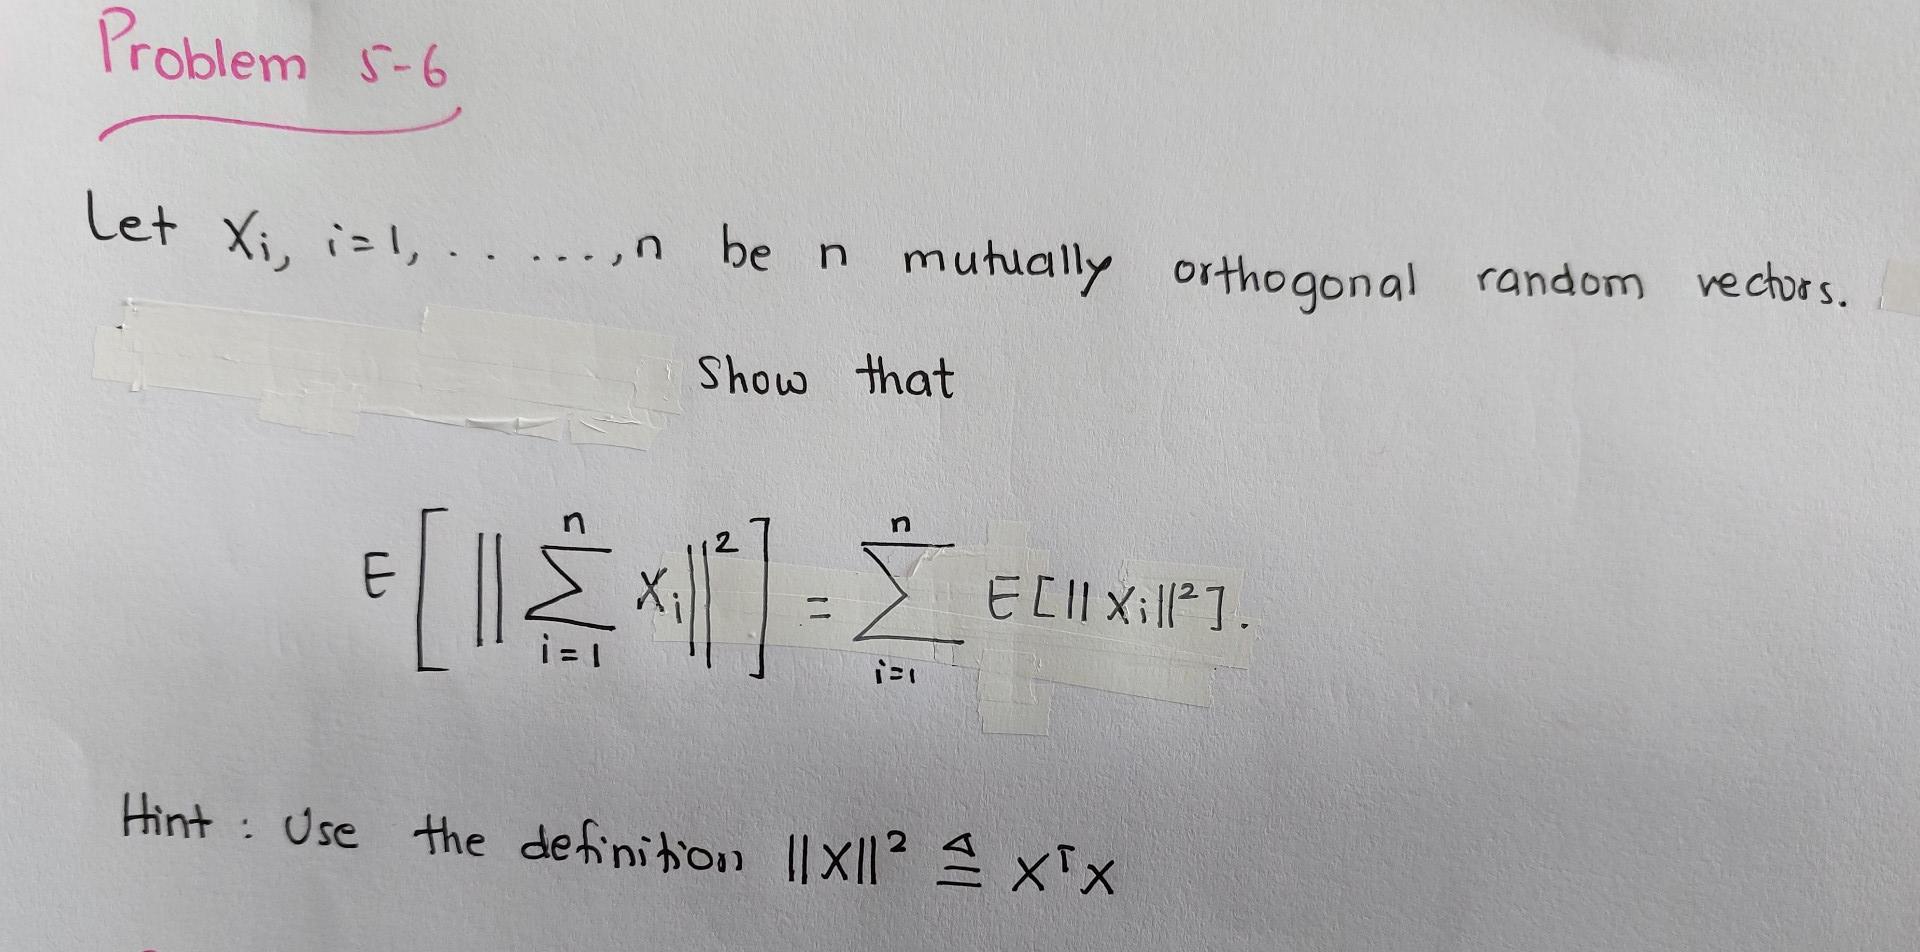 Problem 5-6
Let Xi, i=1, . . . . . ., n be n mutually orthogonal random vectors.
Show that
E[||∑_{i=1}^{n} Xi||²] = ∑_{i=1}^{n} E[||Xi||²].
Hint : Use the definition ||X||² ≜ XᵀX